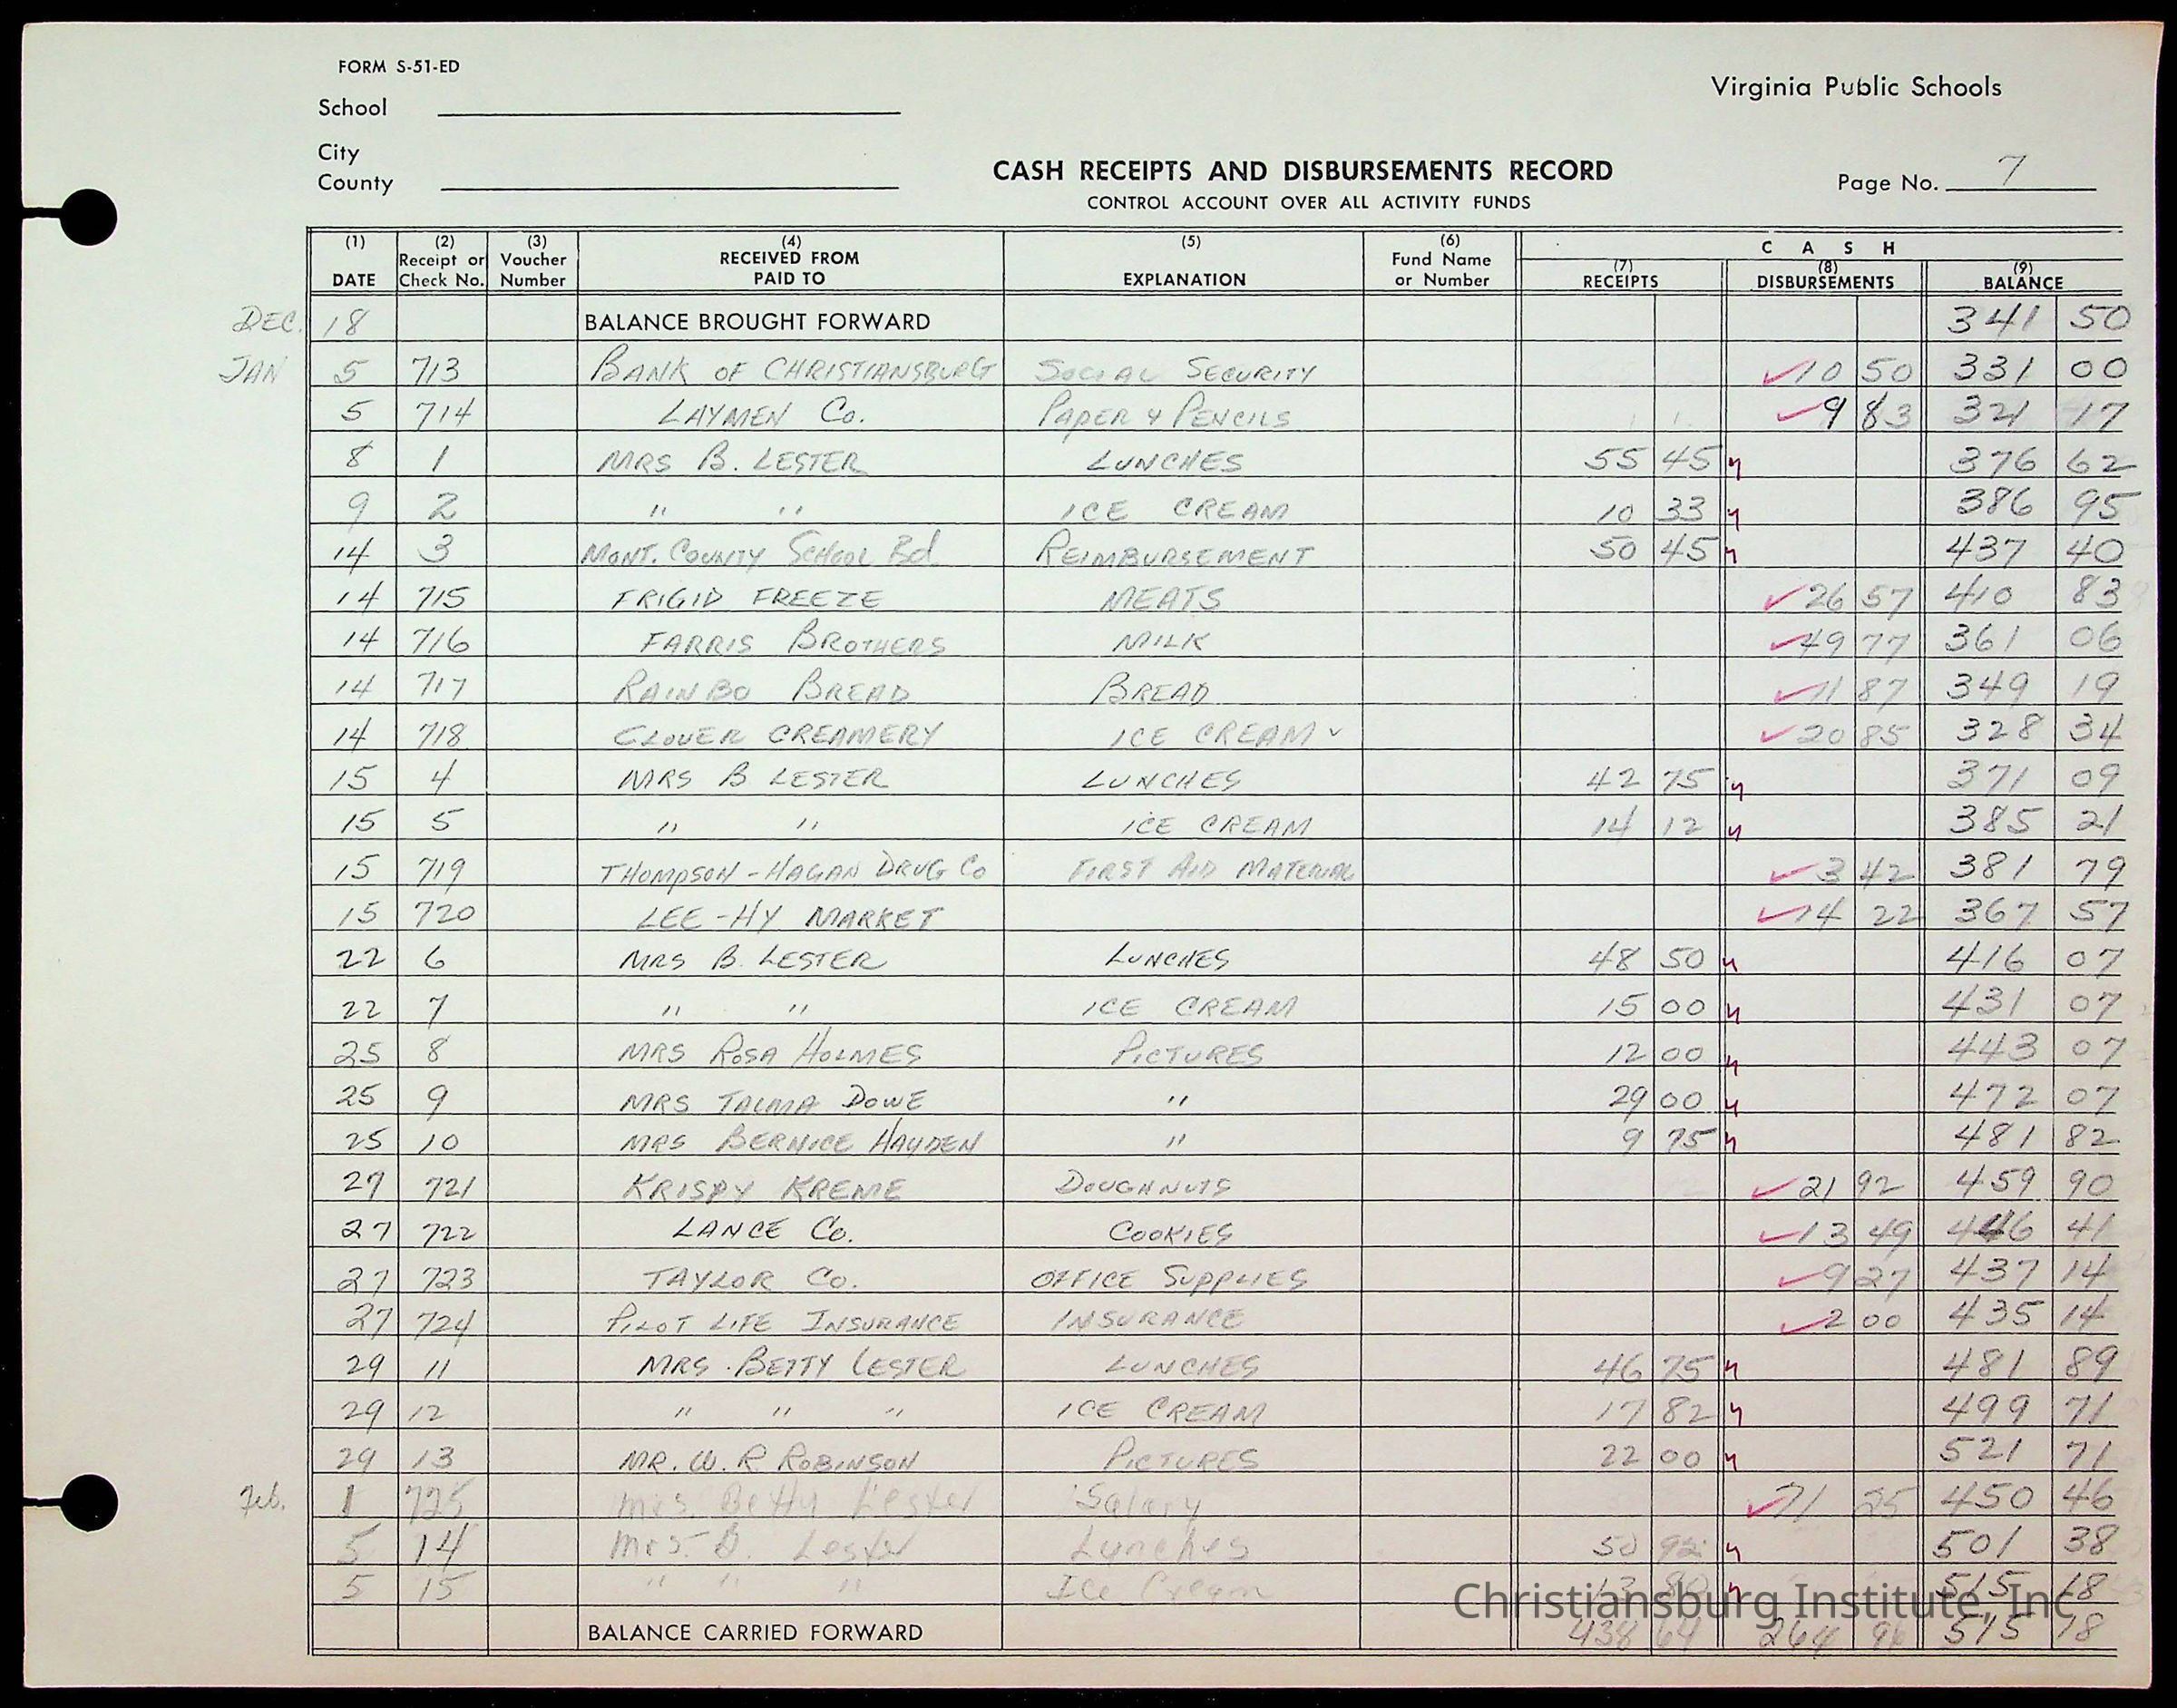 FORM S-51-ED
Virginia Public Schools
School
City
County
CASH RECEIPTS AND DISBURSEMENTS RECORD
CONTROL ACCOUNT OVER ALL ACTIVITY FUNDS
Page No. 7
(1) DATE (2) Receipt or Check No. (3) Voucher Number (4) RECEIVED FROM PAID TO (5) EXPLANATION (6) Fund Name or Number CASH (7) RECEIPTS (8) DISBURSEMENTS (9) BALANCE
DEC. 18 BALANCE BROUGHT FORWARD 341 50
JAN 5 713 BANK OF CHRISTIANSBURG SOCIAL SECURITY ✓10 50 331 00
5 714 LAYMEN Co. PAPER & PENCILS ✓9 83 321 17
8 1 MRS B. LESTER LUNCHES 55 45 376 62
9 2 " " ICE CREAM 10 33 386 95
14 3 MONT. COUNTY SCHOOL Bd. REIMBURSEMENT 50 45 437 40
14 715 FRIGID FREEZE MEATS ✓26 57 410 83
14 716 FARRIS BROTHERS MILK ✓49 77 361 06
14 717 RAINBO BREAD BREAD ✓11 87 349 19
14 718 CLOVER CREAMERY ICE CREAM ✓ ✓20 85 328 34
15 4 MRS B LESTER LUNCHES 42 75 371 09
15 5 " " ICE CREAM 14 12 385 21
15 719 THOMPSON-HAGAN DRUG Co FIRST AID MATERIAL ✓3 42 381 79
15 720 LEE-HY MARKET ✓14 22 367 57
22 6 MRS B. LESTER LUNCHES 48 50 416 07
22 7 " " ICE CREAM 15 00 431 07
25 8 MRS ROSA HOLMES PICTURES 12 00 443 07
25 9 MRS TALMA DOWE " 29 00 472 07
25 10 MRS BERNICE HAYDEN " 9 75 481 82
27 721 KRISPY KREME DOUGHNUTS ✓21 92 459 90
27 722 LANCE Co. COOKIES ✓13 49 446 41
27 723 TAYLOR Co. OFFICE SUPPLIES ✓9 27 437 14
27 724 PILOT LIFE INSURANCE INSURANCE ✓2 00 435 14
29 11 MRS. BETTY LESTER LUNCHES 46 75 481 89
29 12 " " " ICE CREAM 17 82 499 71
29 13 MR. W. R. ROBINSON PICTURES 22 00 521 71
Feb. 1 725 Mrs. Betty Lester Salary ✓71 25 450 46
5 14 Mrs. B. Lester Lunches 50 92 501 38
5 15 " " " Ice Cream 13 80 515 18
BALANCE CARRIED FORWARD 438 64 264 96 515 18
Christiansburg Institute, Inc